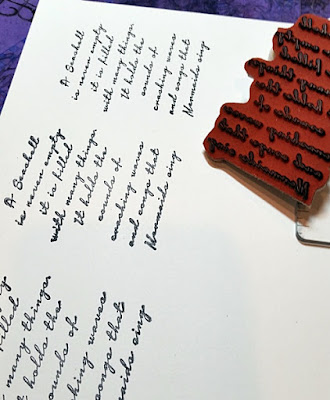 A Seashell
is never empty
it is filled
with many things
It holds the
sounds of
crashing waves
and songs that
Mermaids sing
A Seashell
is never empty
it is filled
with many things
It holds the
sounds of
crashing waves
and songs that
Mermaids sing
filled
many things
holds the
ounds of
shing waves
songs that
maids sing